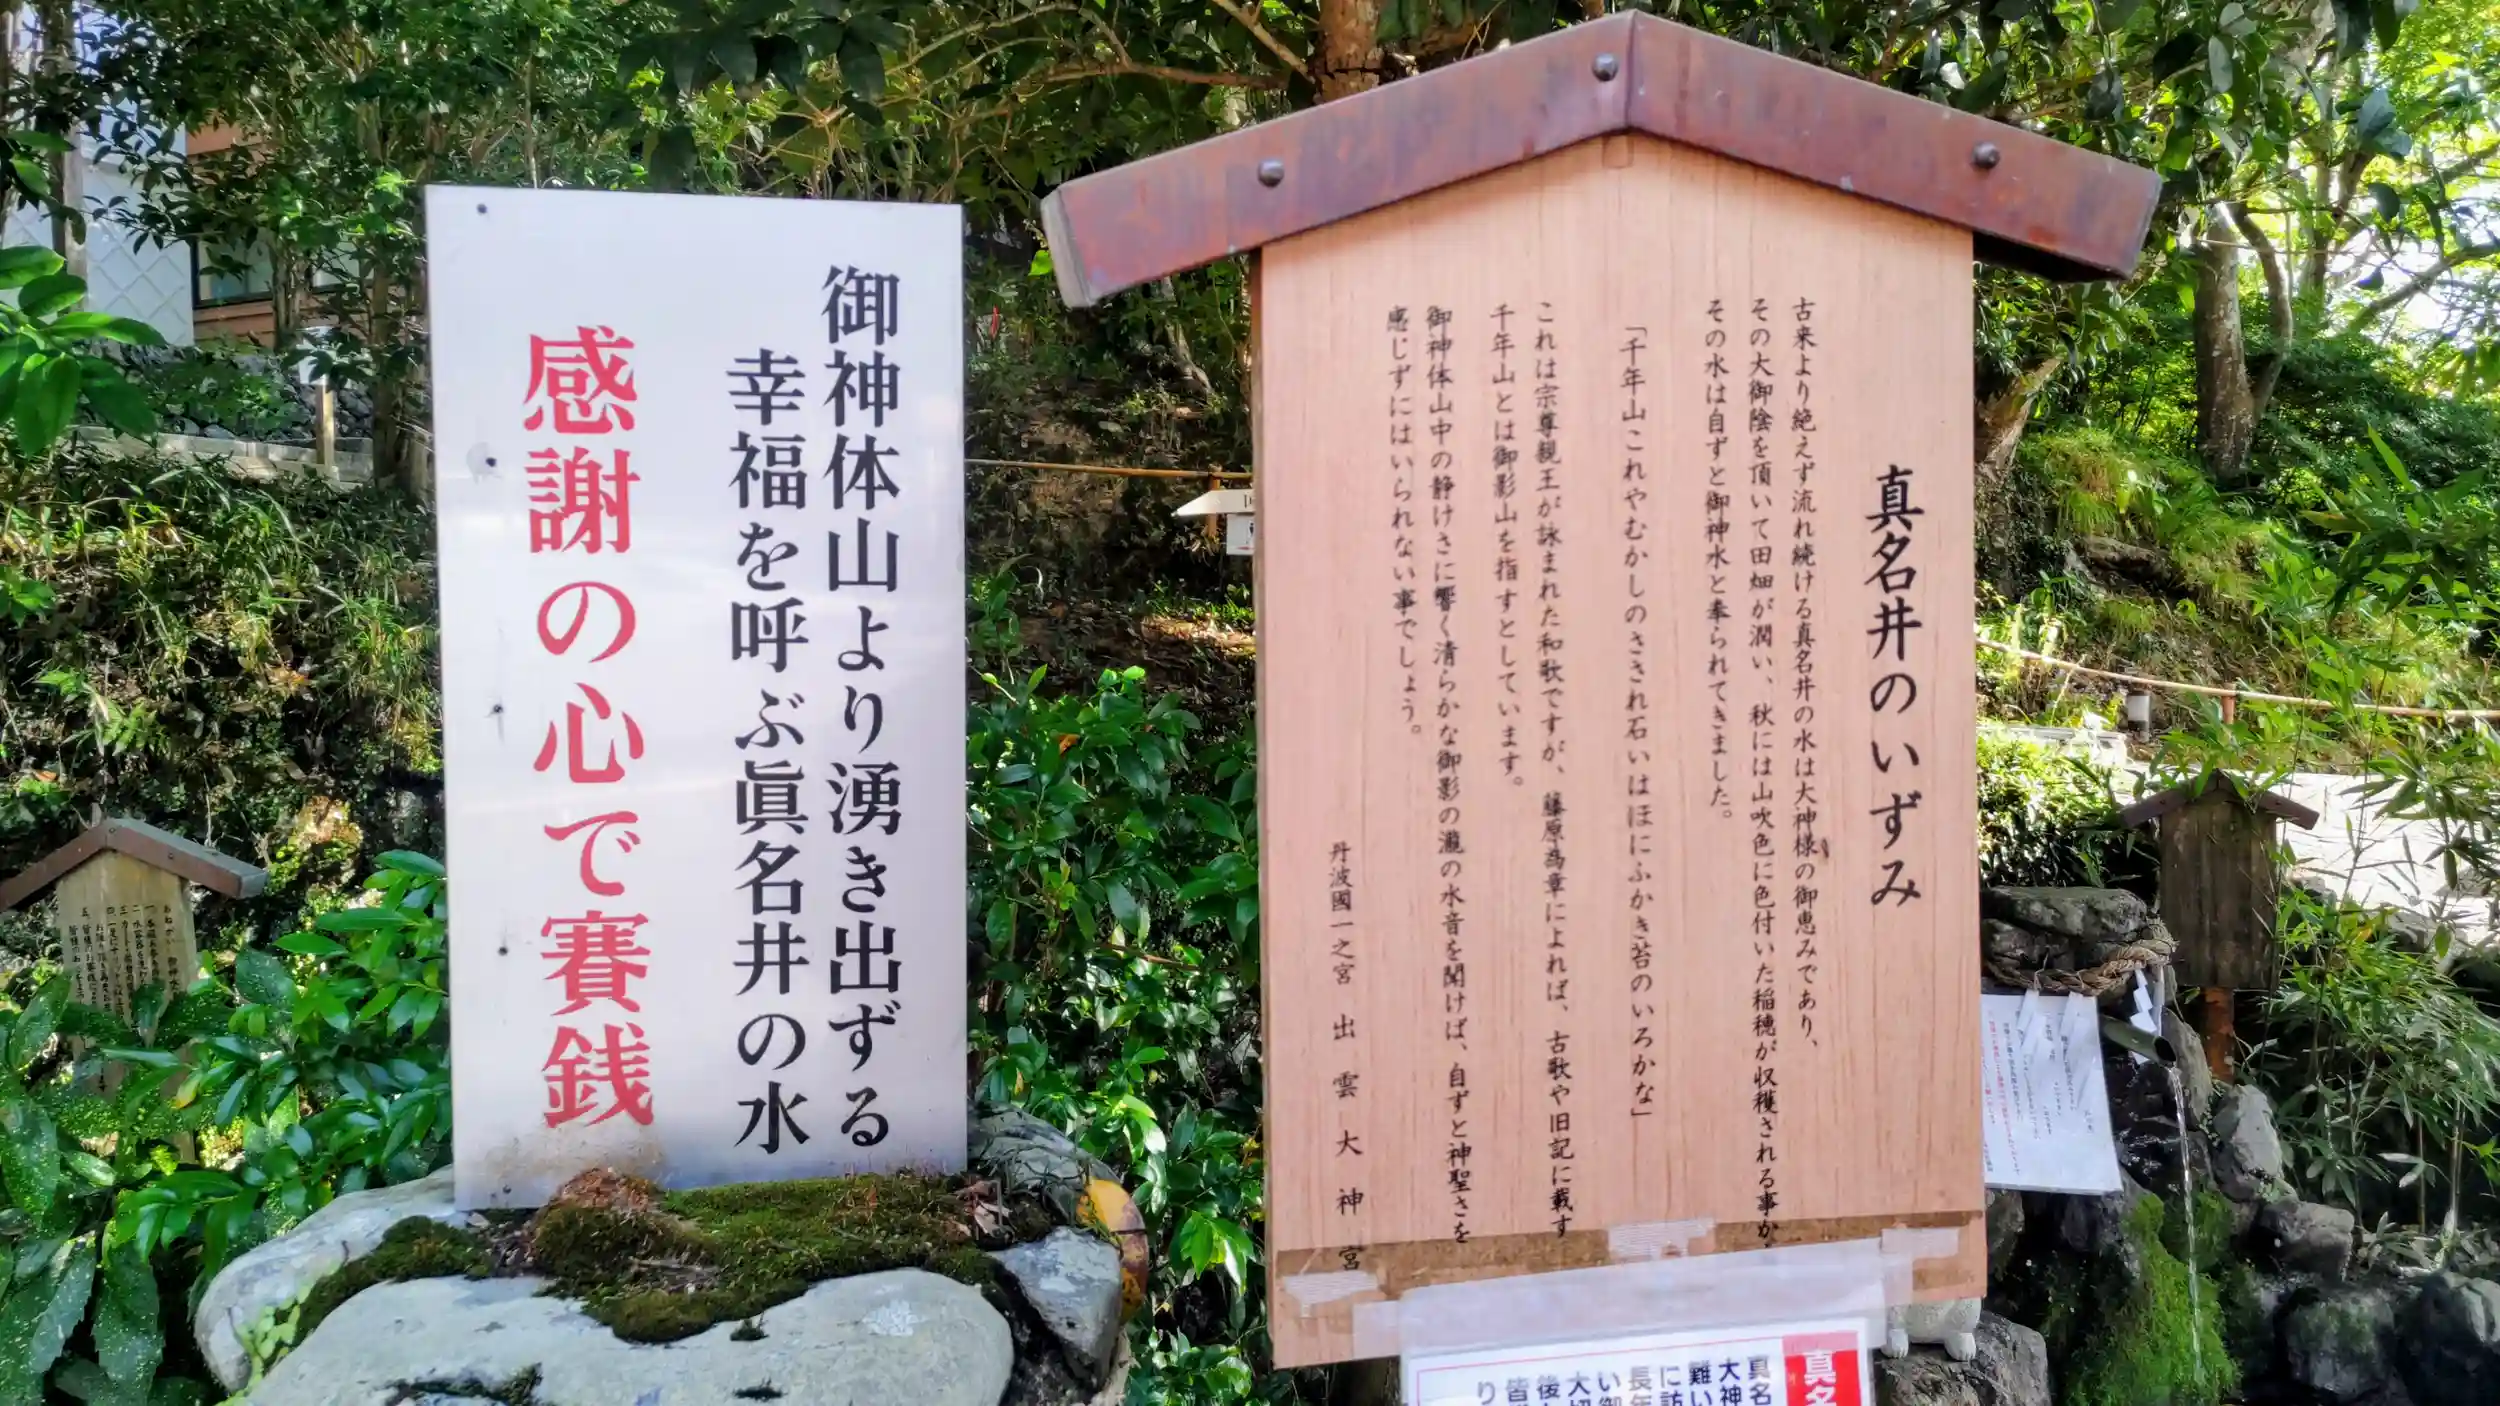 御神体山より湧き出ずる
幸福を呼ぶ眞名井の水
感謝の心で賽銭
真名井のいずみ
古来より絶えず流れ続ける真名井の水は大神様の御恵みであり、
その大御陰を頂いて田畑が潤い、秋には山吹色に色付いた稲穂が収穫される事か、
その水は自ずと御神水と奉られてきました。
「千年山これやむかしのさされ石いはほにふかき苔のいろかな」
これは宗尊親王が詠まれた和歌ですが、藤原為章によれば、古歌や旧記に載す
千年山とは御影山を指すとしています。
御神体山中の静けさに響く清らかな御影の瀧の水音を聞けば、自ずと神聖さを
感じずにはいられない事でしょう。
丹波國一之宮 出雲大神宮
真名
真名
大神
難い
に訪
長年
い御
大切
後
皆
り